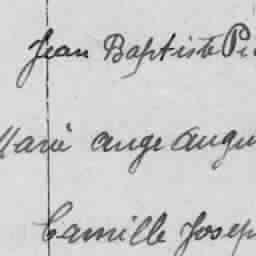 Jean Baptiste Pi
Marie Ange Augu
Camille Josep